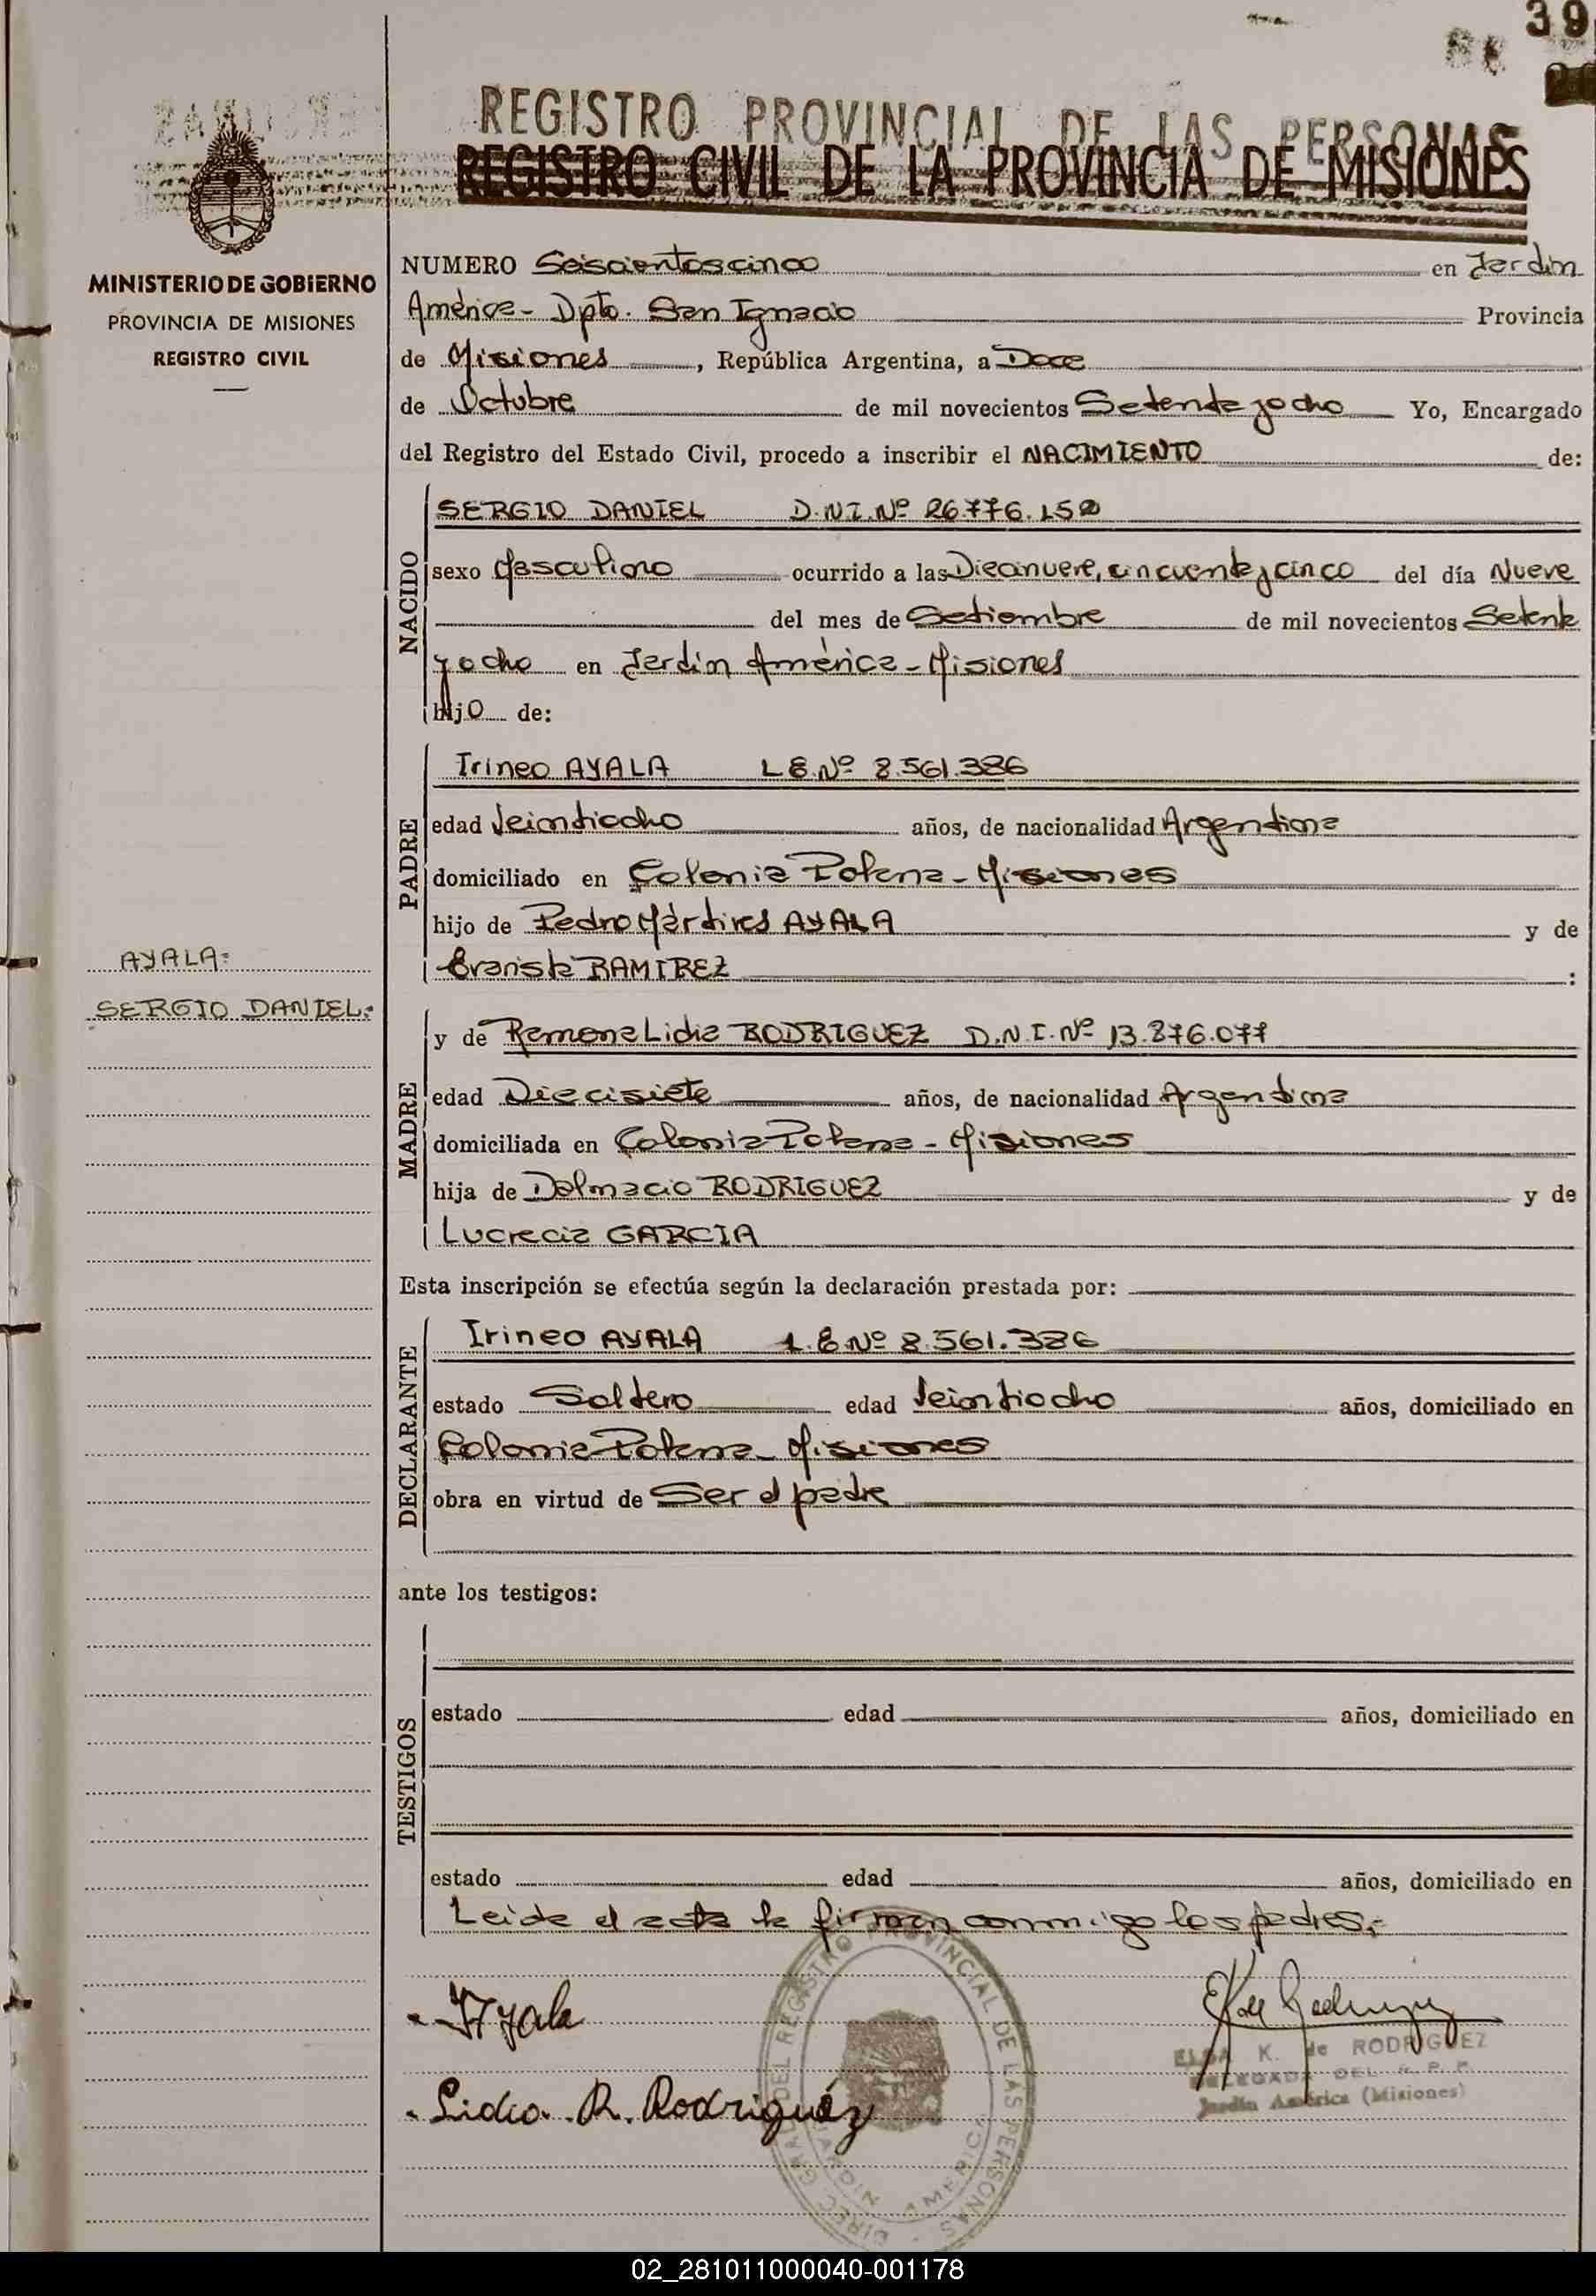 39
REGISTRO PROVINCIAL DE LAS PERSONAS
REGISTRO CIVIL DE LA PROVINCIA DE MISIONES
MINISTERIO DE GOBIERNO
PROVINCIA DE MISIONES
REGISTRO CIVIL
NUMERO Seiscientos cinco en Jardin
América - Dpto. San Ignacio Provincia
de Misiones, República Argentina, a Doce
de Octubre de mil novecientos Setenta y ocho Yo, Encargado
del Registro del Estado Civil, procedo a inscribir el NACIMIENTO de:
NACIDO
SERGIO DANIEL D.N.I. Nº 26.776.152
sexo Masculino ocurrido a las Diecinueve, cincuenta y cinco del día Nueve
del mes de Setiembre de mil novecientos Setenta
y ocho en Jardín América - Misiones
hijo de:
PADRE
Irineo AYALA L.E. Nº 8.561.386
edad Veintiocho años, de nacionalidad Argentina
domiciliado en Colonia Polana - Misiones
hijo de Pedro Mártires AYALA y de
Evarista RAMIREZ :
AYALA:
SERGIO DANIEL:
MADRE
y de Ramona Lidia RODRIGUEZ D.N.I. Nº 13.876.077
edad Diecisiete años, de nacionalidad Argentina
domiciliada en Colonia Polana - Misiones
hija de Dalmacio RODRIGUEZ y de
Lucrecia GARCIA
Esta inscripción se efectúa según la declaración prestada por:
DECLARANTE
Irineo AYALA L.E. Nº 8.561.386
estado Soltero edad Veintiocho años, domiciliado en
Colonia Polana - Misiones
obra en virtud de Ser el padre
ante los testigos:
TESTIGOS
estado edad años, domiciliado en
estado edad años, domiciliado en
Leida el acta la firman conmigo los padres.-
I Ayala
Lidia R. Rodriguéz
ELSA K. de RODRIGUEZ
DELEGADA DEL R. P. P.
Jardín América (Misiones)
DIREC. GRAL. DEL REGISTRO PROVINCIAL DE LAS PERSONAS
JARDIN AMERICA
02_281011000040-001178